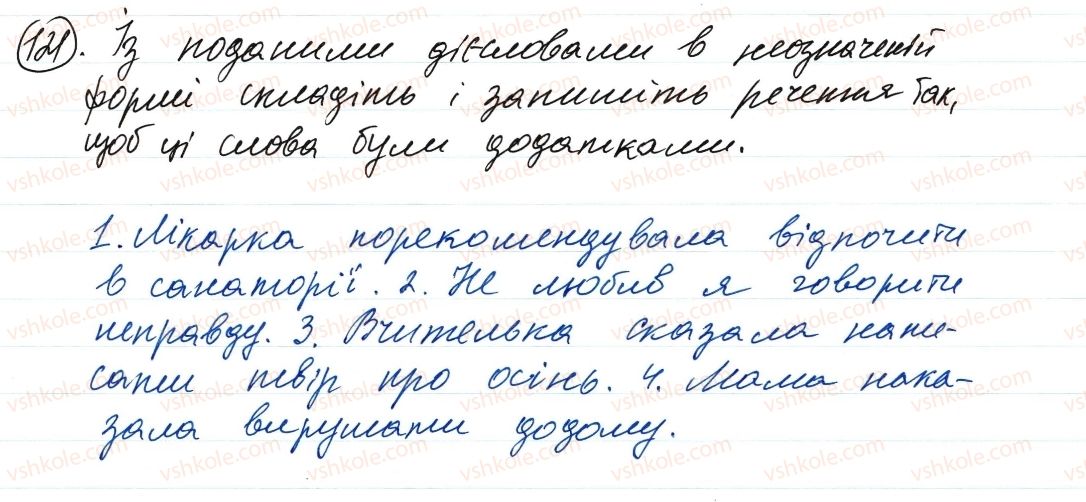 121. Із поданими дієсловами в неозначеній
формі складіть і запишіть речення так,
щоб ці слова були додатками.
1. Лікарка порекомендувала відпочити
в санаторії. 2. Не любив я говорити
неправду. 3. Вчителька сказала напи-
сати твір про осінь. 4. Мама нака-
зала вирушати додому.